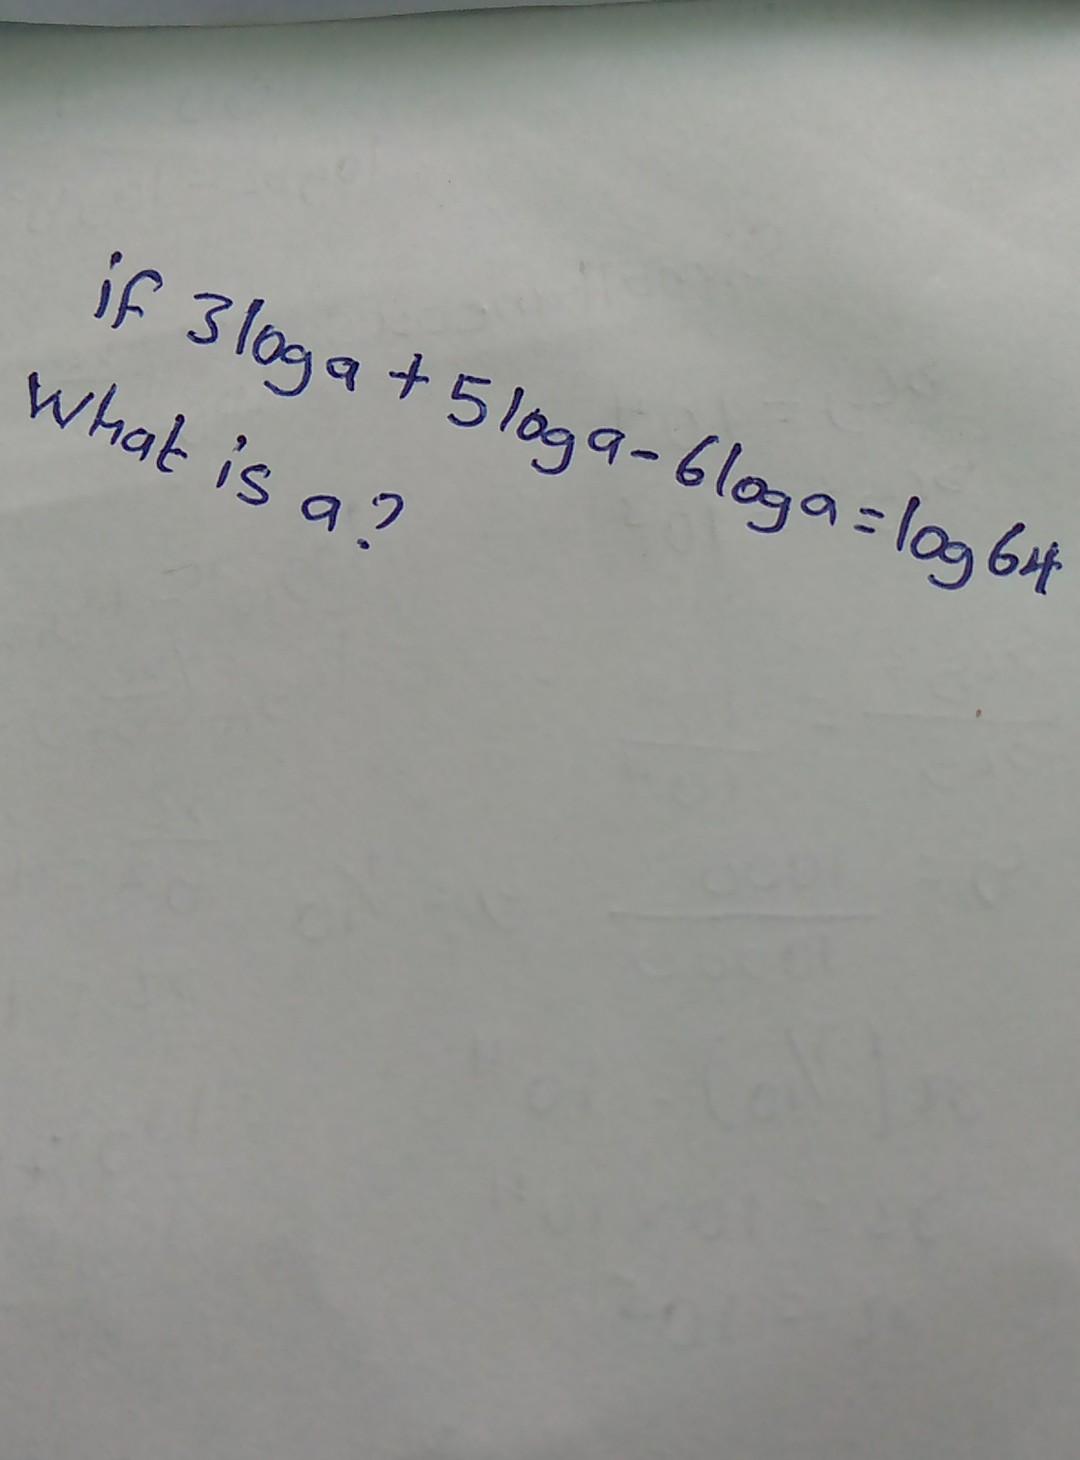 if 3loga + 5loga - 6loga = log64
What is a?